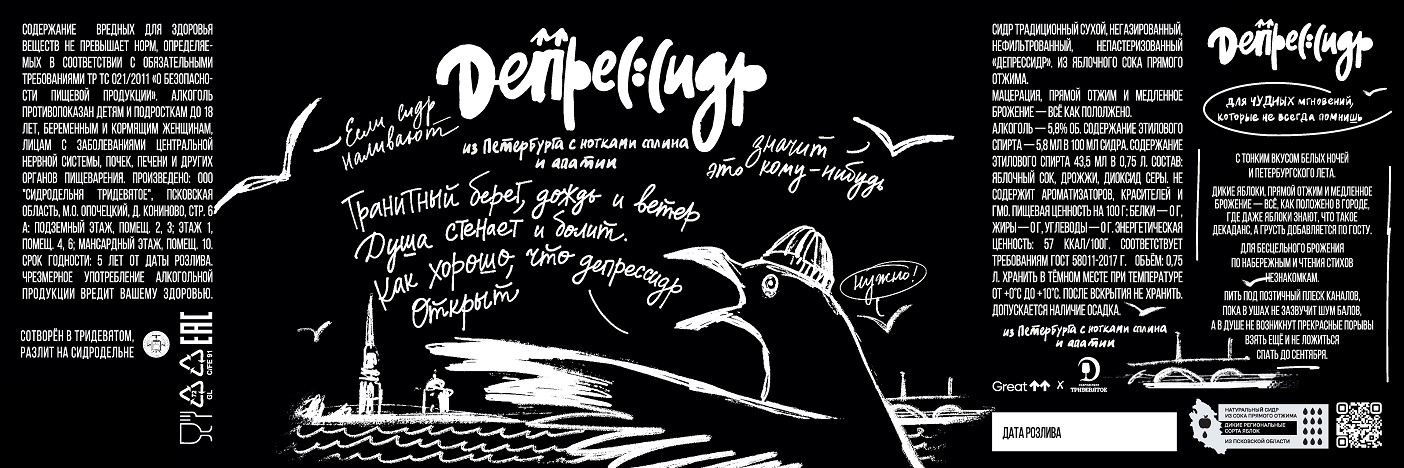 СОДЕРЖАНИЕ ВРЕДНЫХ ДЛЯ ЗДОРОВЬЯ
ВЕЩЕСТВ НЕ ПРЕВЫШАЕТ НОРМ, ОПРЕДЕЛЯЕ-
МЫХ В СООТВЕТСТВИИ С ОБЯЗАТЕЛЬНЫМИ
ТРЕБОВАНИЯМИ ТР ТС 021/2011 «О БЕЗОПАСНО-
СТИ ПИЩЕВОЙ ПРОДУКЦИИ». АЛКОГОЛЬ
ПРОТИВОПОКАЗАН ДЕТЯМ И ПОДРОСТКАМ ДО 18
ЛЕТ, БЕРЕМЕННЫМ И КОРМЯЩИМ ЖЕНЩИНАМ,
ЛИЦАМ С ЗАБОЛЕВАНИЯМИ ЦЕНТРАЛЬНОЙ
НЕРВНОЙ СИСТЕМЫ, ПОЧЕК, ПЕЧЕНИ И ДРУГИХ
ОРГАНОВ ПИЩЕВАРЕНИЯ. ПРОИЗВЕДЕНО: ООО
"СИДРОДЕЛЬНЯ ТРИДЕВЯТОЕ", ПСКОВСКАЯ
ОБЛАСТЬ, М.О. ОПОЧЕЦКИЙ, Д. КОНИНОВО, СТР. 6
А: ПОДЗЕМНЫЙ ЭТАЖ, ПОМЕЩ. 2, 3; ЭТАЖ 1,
ПОМЕЩ. 4, 6; МАНСАРДНЫЙ ЭТАЖ, ПОМЕЩ. 10.
СРОК ГОДНОСТИ: 5 ЛЕТ ОТ ДАТЫ РОЗЛИВА.
ЧРЕЗМЕРНОЕ УПОТРЕБЛЕНИЕ АЛКОГОЛЬНОЙ
ПРОДУКЦИИ ВРЕДИТ ВАШЕМУ ЗДОРОВЬЮ.
СОТВОРЁН В ТРИДЕВЯТОМ,
РАЗЛИТ НА СИДРОДЕЛЬНЕ
EAC
C/FE 91
72
GL
Депрес(:(идр
Если сидр
наливают
из Петербурга с нотками сплина
и апатии
значит
это кому-нибудь
Гранитный берег, дождь и ветер
Душа стенает и болит.
Как хорошо, что депрессидр
Открыт
нужно!
СИДР ТРАДИЦИОННЫЙ СУХОЙ, НЕГАЗИРОВАННЫЙ,
НЕФИЛЬТРОВАННЫЙ, НЕПАСТЕРИЗОВАННЫЙ
«ДЕПРЕССИДР». ИЗ ЯБЛОЧНОГО СОКА ПРЯМОГО
ОТЖИМА.
МАЦЕРАЦИЯ, ПРЯМОЙ ОТЖИМ И МЕДЛЕННОЕ
БРОЖЕНИЕ — ВСЁ КАК ПОЛОЖЕНО.
АЛКОГОЛЬ — 5,8% ОБ. СОДЕРЖАНИЕ ЭТИЛОВОГО
СПИРТА — 5,8 МЛ В 100 МЛ СИДРА. СОДЕРЖАНИЕ
ЭТИЛОВОГО СПИРТА 43,5 МЛ В 0,75 Л. СОСТАВ:
ЯБЛОЧНЫЙ СОК, ДРОЖЖИ, ДИОКСИД СЕРЫ. НЕ
СОДЕРЖИТ АРОМАТИЗАТОРОВ, КРАСИТЕЛЕЙ И
ГМО. ПИЩЕВАЯ ЦЕННОСТЬ НА 100 Г: БЕЛКИ — 0 Г,
ЖИРЫ — 0 Г, УГЛЕВОДЫ — 0 Г. ЭНЕРГЕТИЧЕСКАЯ
ЦЕННОСТЬ: 57 ККАЛ/100Г. СООТВЕТСТВУЕТ
ТРЕБОВАНИЯМ ГОСТ 58011-2017 Г. ОБЪЁМ: 0,75
Л. ХРАНИТЬ В ТЁМНОМ МЕСТЕ ПРИ ТЕМПЕРАТУРЕ
ОТ +0°С ДО +10°С. ПОСЛЕ ВСКРЫТИЯ НЕ ХРАНИТЬ.
ДОПУСКАЕТСЯ НАЛИЧИЕ ОСАДКА.
из Петербурга с нотками сплина
и апатии
Great X
ТРИДЕВЯТОЕ
ДАТА РОЗЛИВА
Депрес(:(идр
для ЧУДНЫХ мгновений,
которые не всегда помнишь
С ТОНКИМ ВКУСОМ БЕЛЫХ НОЧЕЙ
И ПЕТЕРБУРГСКОГО ЛЕТА.
ДИКИЕ ЯБЛОКИ, ПРЯМОЙ ОТЖИМ И МЕДЛЕННОЕ
БРОЖЕНИЕ — ВСЁ, КАК ПОЛОЖЕНО В ГОРОДЕ,
ГДЕ ДАЖЕ ЯБЛОКИ ЗНАЮТ, ЧТО ТАКОЕ
ДЕКАДАНС, А ГРУСТЬ ДОБАВЛЯЕТСЯ ПО ГОСТУ.
ДЛЯ БЕСЦЕЛЬНОГО БРОЖЕНИЯ
ПО НАБЕРЕЖНЫМ И ЧТЕНИЯ СТИХОВ
НЕЗНАКОМКАМ.
ПИТЬ ПОД ПОЭТИЧНЫЙ ПЛЕСК КАНАЛОВ,
ПОКА В УШАХ НЕ ЗАЗВУЧИТ ШУМ БАЛОВ,
А В ДУШЕ НЕ ВОЗНИКНУТ ПРЕКРАСНЫЕ ПОРЫВЫ
ВЗЯТЬ ЕЩЁ И НЕ ЛОЖИТЬСЯ
СПАТЬ ДО СЕНТЯБРЯ.
НАТУРАЛЬНЫЙ СИДР
ИЗ СОКА ПРЯМОГО ОТЖИМА
ДИКИЕ РЕГИОНАЛЬНЫЕ
СОРТА ЯБЛОК
ИЗ ПСКОВСКОЙ ОБЛАСТИ